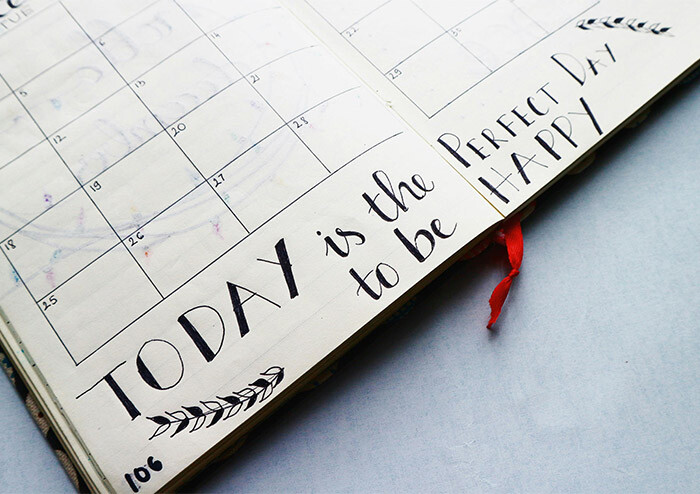 TUE
5 6
12 13 14
18 19 20 21
25 26 27 28
22
29
TODAY is the PERFECT DAY
to be HAPPY
106